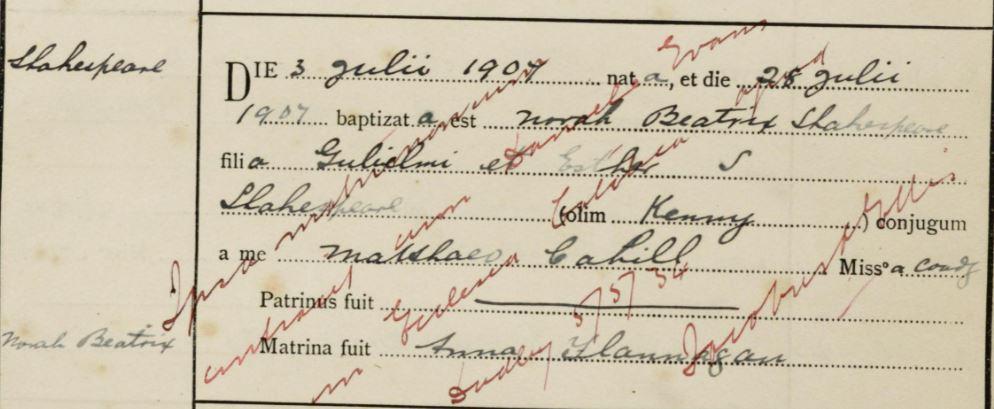 Shakespeare
DIE 3 Julii 1907 nat a, et die 28 Julii
1907 baptizat a est Norah Beatrix Shakespeare
fili a Gulielmi et Esther S
Shakespeare (olim Kenny) conjugum
a me Matthaeo Cahill Miss° a coadj
Patrinus fuit
Norah Beatrix
Matrina fuit Anna Flannigan
Ipsa matrimonium
contraxit cum Daniele Evans
in Ecclesia apud
Dudley 5/5/34
Jacobus Ellis